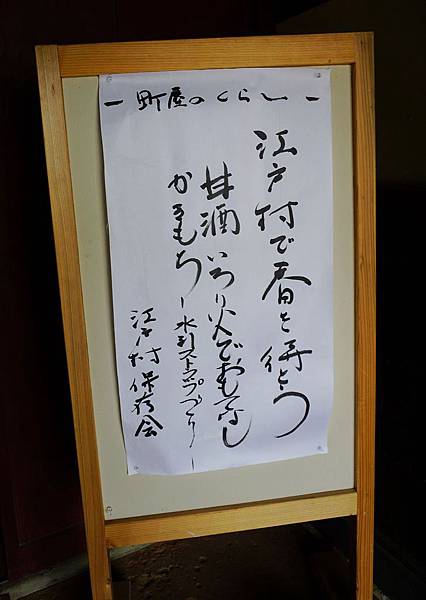 ー町屋のくらしー
江戸村で春を待とう
甘酒 いろり火でおもてなし
かきもちー水引ストラップづくりー
江戸村保存会